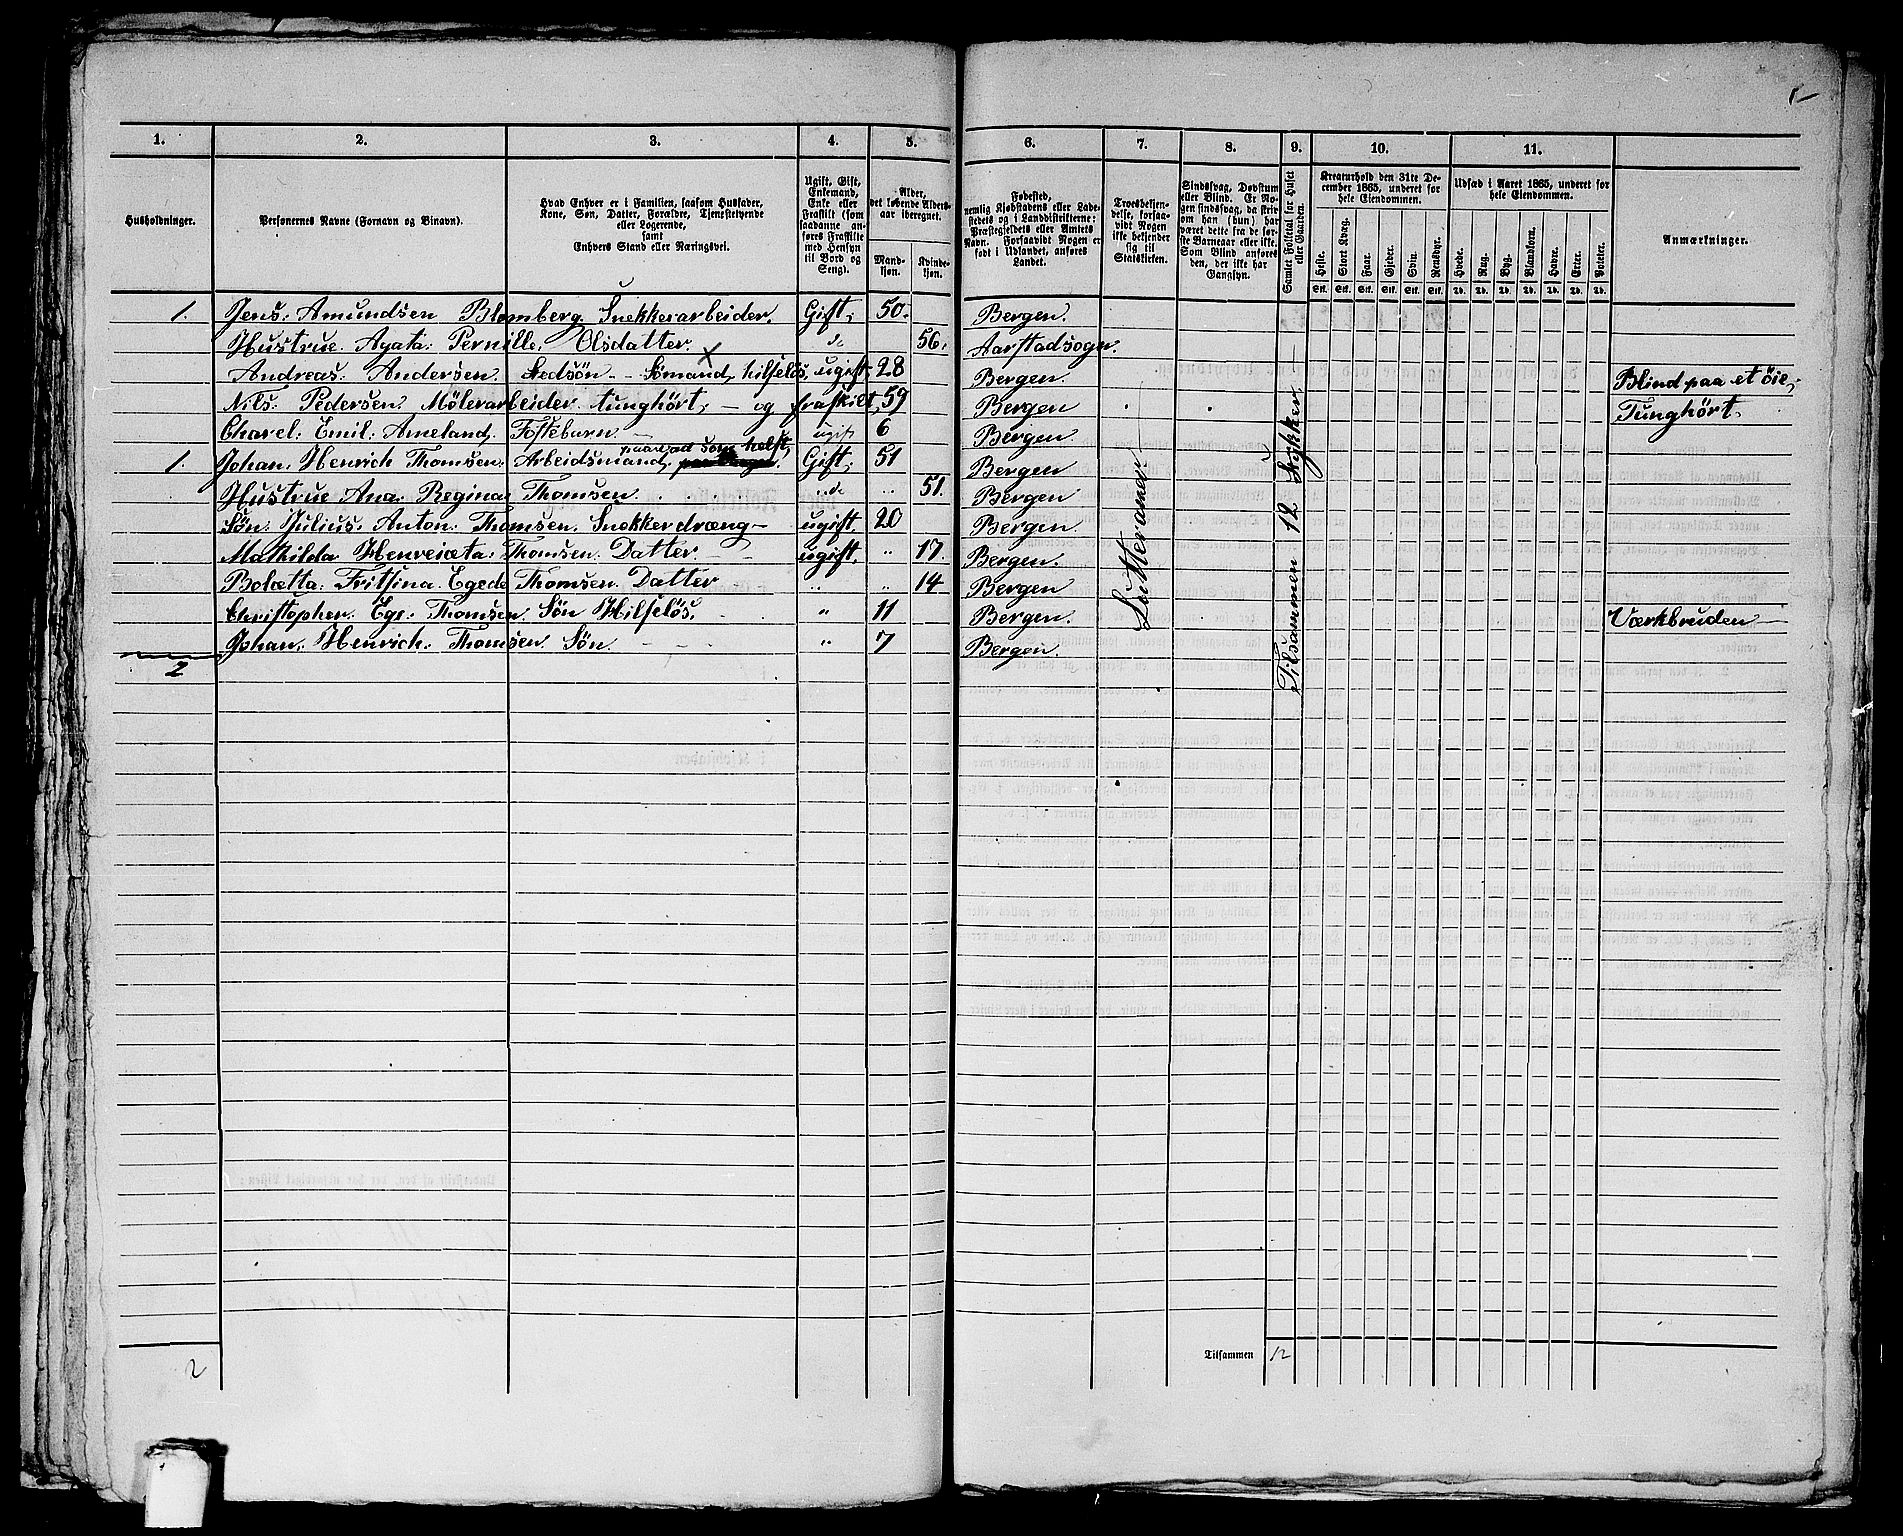 1. 2. 3. 4. 5. 6. 7. 8. 9. 10. 11.
Husholdninger.
Personernes Navne (Fornavn og Binavn).
Hvad Enhver er i Familien, saasom Husfader,
Kone, Søn, Datter, Forældre, Tjenestetyende
eller Logerende,
samt
Enhvers Stand eller Næringsvei.
Ugift, Gift,
Enkemand,
Enke eller
Fraskilt (som
saadanne an-
føres Fraskilte
med Hensyn
til Bord og
Seng).
Alder,
det løbende Alders-
aar iberegnet.
Mand-
kjøn.
Kvinde-
kjøn.
Fødested,
nemlig Kjøbstadens eller Lade-
stedets og i Landdistrikterne:
Præstegjeldets eller Amtets
Navn. Forsaavidt Nogen er
født i Udlandet, anføres
Landet.
Troesbekjen-
delse, forsaa-
vidt Nogen
ikke bekjender
sig til
Statskirken.
Sindssvag, Døvstum
eller Blind. Er No-
gen sindssvag, da skrives
om han (hun) har
været dette fra de før-
ste Barneaar eller ikke.
Som Blind anføres
den, der ikke har
Gangsyn.
Samlet Folketal for Huset
eller Gaarden.
Kreaturhold den 31te De-
cember 1865, underet for
hele Eiendommen.
Heste. Stort Kvæg. Faar. Gjeder. Svin. Rensdyr.
Stk. Stk. Stk. Stk. Stk. Stk.
Udsæd i Aaret 1865, underet for
hele Eiendommen.
Hvede. Rug. Byg. Blandkorn. Havre. Erter. Poteter.
Td. Td. Td. Td. Td. Td. Td.
Anmærkninger.
1. Jens: Amundsen Blomberg. Snekkerarbeider. Gift. 50. Bergen.
Hustrue. Agata: Pernille. Olsdatter. do 56. Aarstadsogn.
Andreas: Andersen. Stedsøn — Sømand, hilseløs, ugift 28 Bergen. Blind paa et øie.
Nils: Pedersen. Mølerarbeider. tunghørt, — og fraskilt, 59 Bergen Tunghørt.
Charel: Emil: Ameland. Fostebarn. — ugift 6 Bergen
1. Johan. Henrich Thomsen. Arbeidsmand, Gift. 51 Bergen
Hustrue Ana: Regina: Thomsen. do 51. Bergen
Søn: Julius: Anton: Thomsen. Snekkerdræng — ugift. 20 Bergen
Mathilda Henreicta: Thomsen. Datter — ugift. 17. Bergen.
Bolætta. Frittina. Egede Thomsen. Datter „ 14 Bergen
Christopher. Ege: Thomsen. Søn Hilseløs. „ 11 Bergen. Værkbruden —
Johan: Henrich: Thomsen. Søn. „ 7 Bergen.
2
Lutteraner
Tilsammen 12 Stykker
2
Tilsammen 12